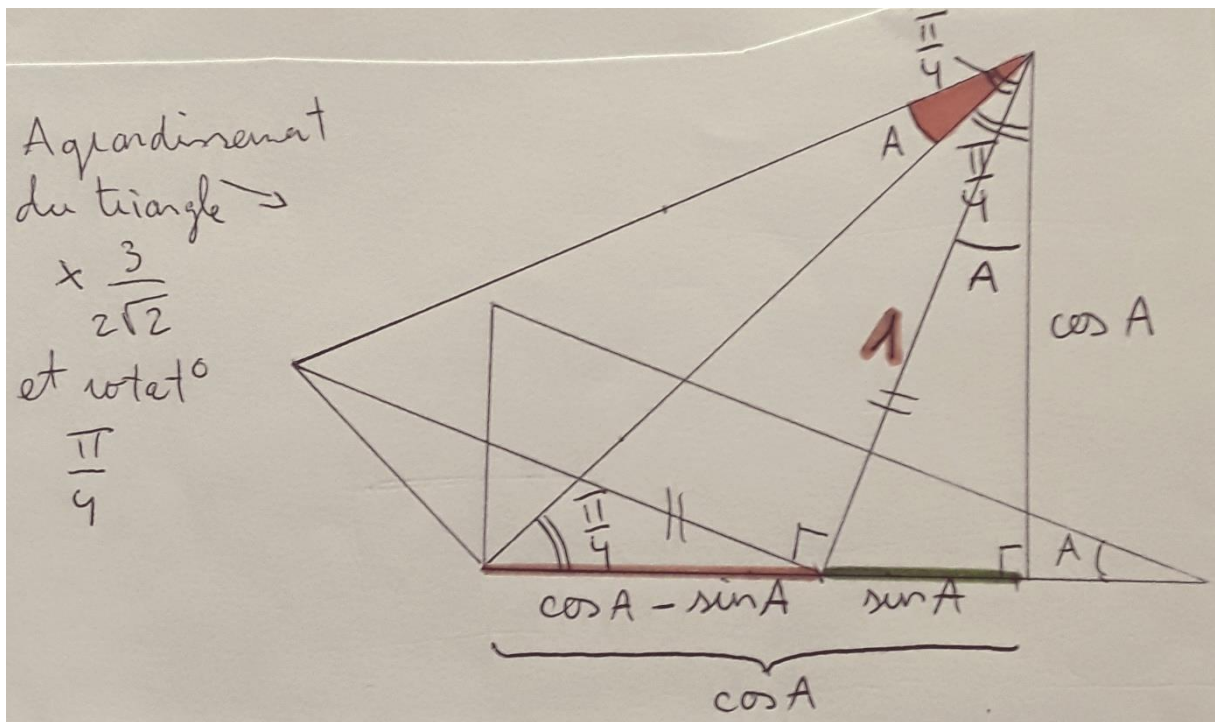 Agrandissement
du triangle →
× 3
2√2
et rotat°
π
4
π
4
A
π
4
A
1
cos A
π
4
A
cos A - sin A
sin A
cos A